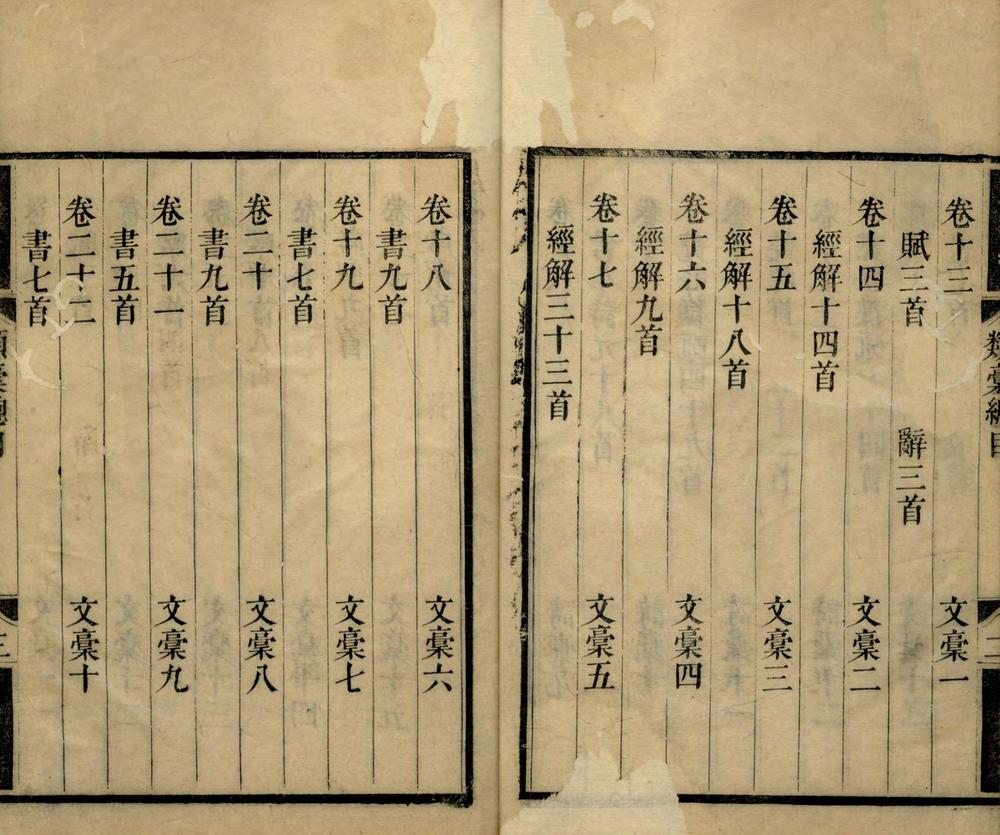 類藁總目
卷十三　文藁一
賦三首　辭三首
卷十四　文藁二
經解十四首
卷十五　文藁三
經解十八首
卷十六　文藁四
經解九首
卷十七　文藁五
經解三十三首
卷十八　文藁六
書九首
卷十九　文藁七
書七首
卷二十　文藁八
書九首
卷二十一　文藁九
書五首
卷二十二　文藁十
書七首
類藁總目